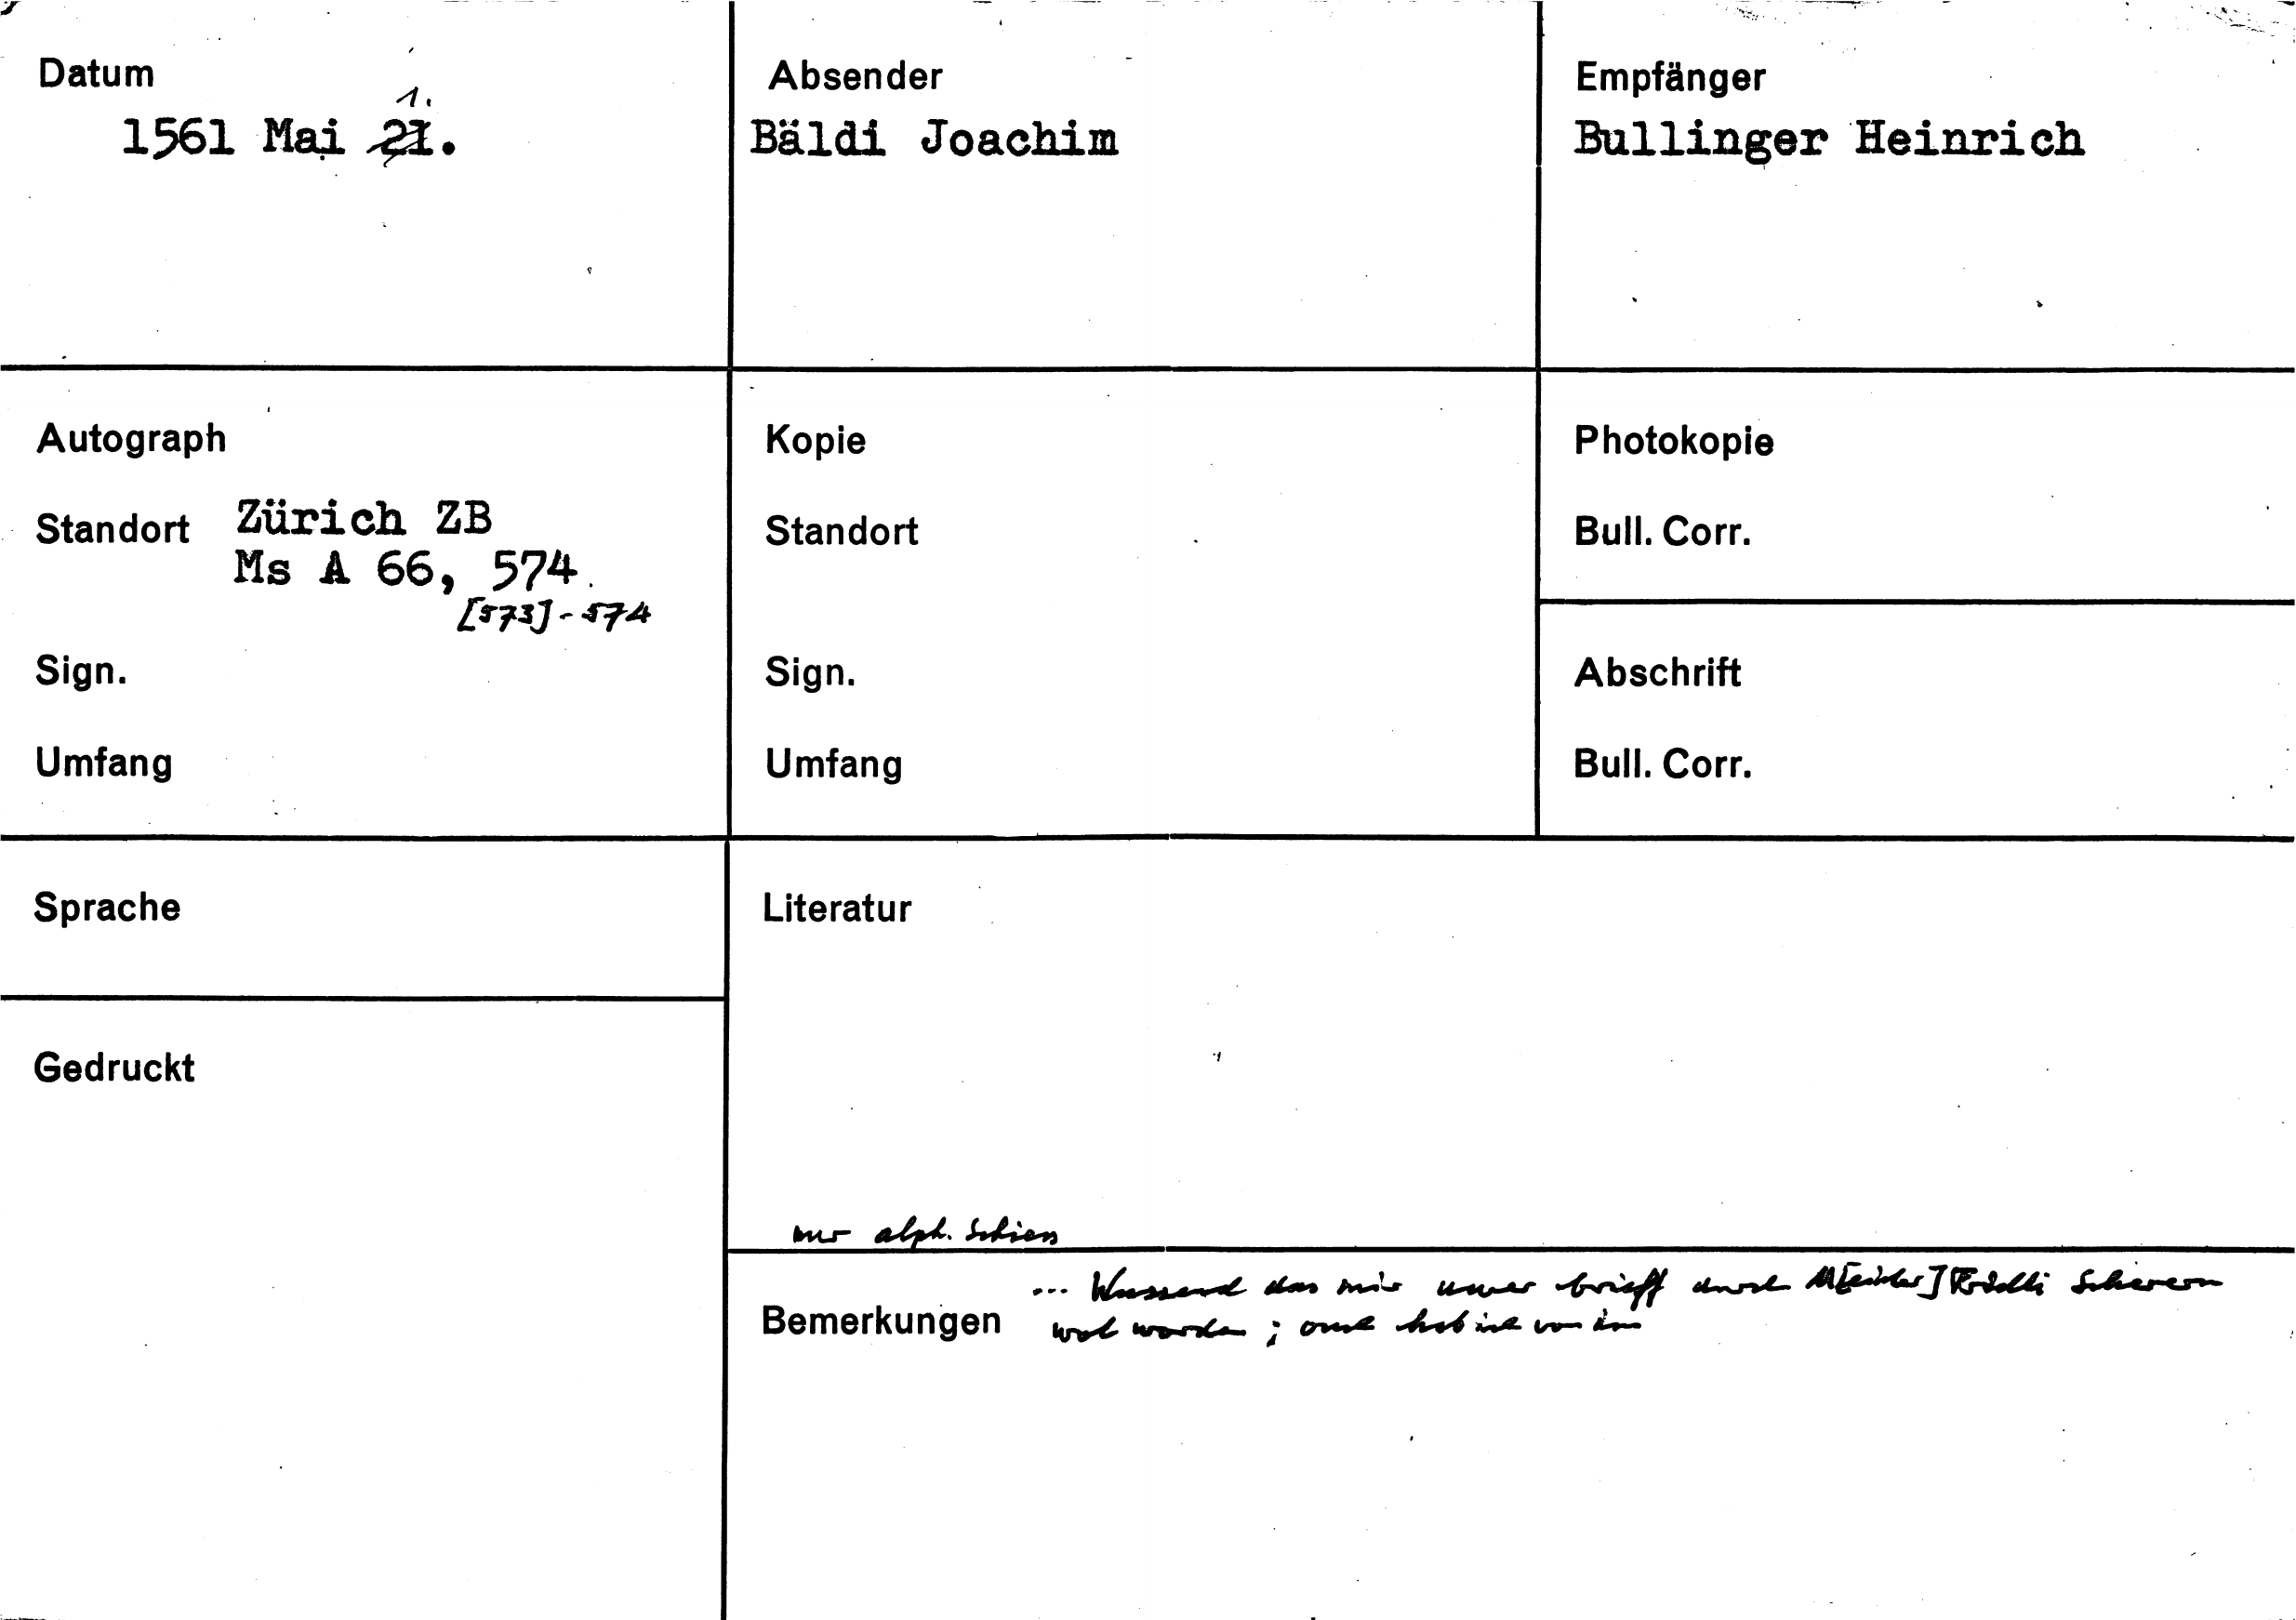 Datum
1.
1561 Mai 21.
Absender
Bäldi Joachim
Empfänger
Bullinger Heinrich
Autograph
Standort Zürich ZB
Ms A 66, 574.
[573]-574
Sign.
Umfang
Kopie
Standort
Sign.
Umfang
Photokopie
Bull. Corr.
Abschrift
Bull. Corr.
Sprache
Gedruckt
Literatur
nur alph. Schiess
Bemerkungen
... Wussend das mir uwer brieff durch M[eister] Scherern
worden; ouch hab ich von im